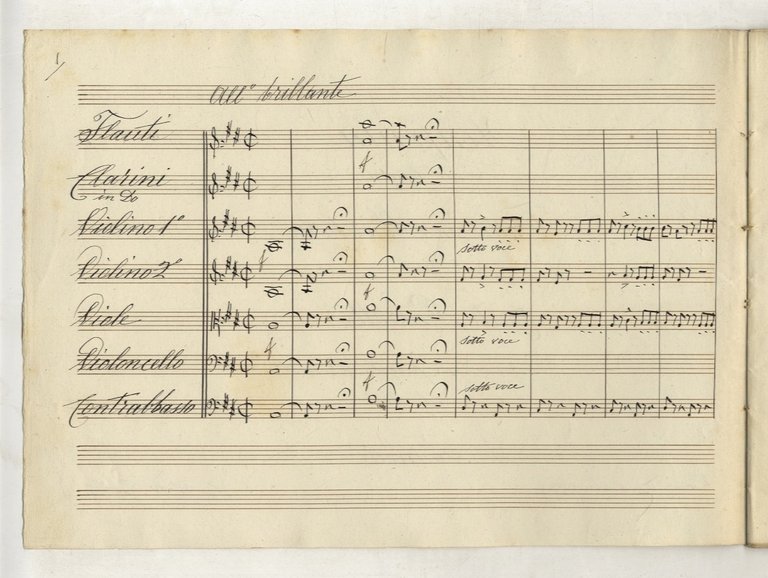 1
All° brillante
Flauti
Clarini
in Do
Violino 1°
sotto voce
f
Violino 2°
f
Viole
sotto voce
f
Violoncello
sotto voce
f
Contrabbasso